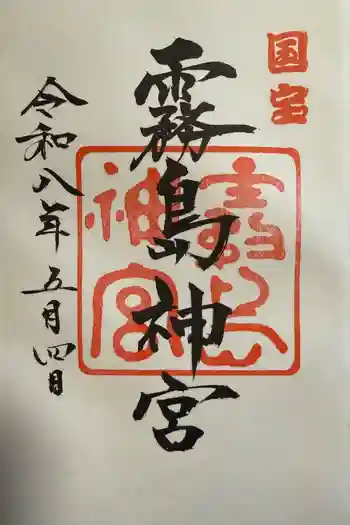 国宝
霧島神宮
霧島神宮
令和八年五月四日